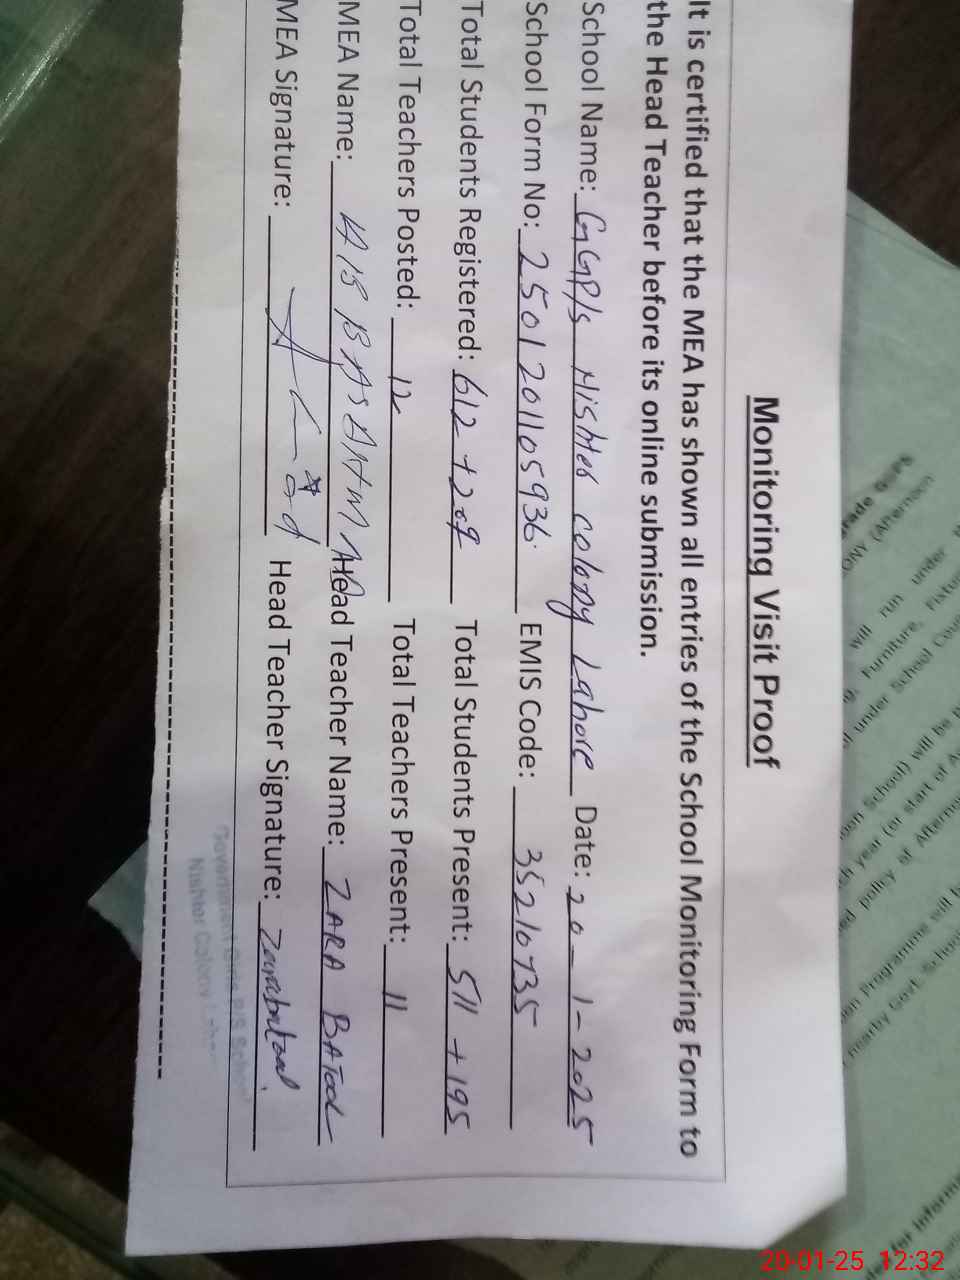 Monitoring Visit Proof
It is certified that the MEA has shown all entries of the School Monitoring Form to
the Head Teacher before its online submission.
School Name: GGP/s Nishter colony Lahore Date: 20-1-2025
School Form No: 2501201105936 EMIS Code: 35210735
Total Students Registered: 612 + 209 Total Students Present: 511 + 195
Total Teachers Posted: 12 Total Teachers Present: 11
MEA Name: Head Teacher Name: ZARA BATOOL
MEA Signature: Head Teacher Signature: Zarabatool
Government Girls P/S School
Nishter Colony Lahore
rade GGPS
ONY (Afternoon
will run under
g. Furniture, Fixtu
under School Cou
oon School) will be
ch year (or start of A
ed policy of Afterno
on Programme will b
nearby Govt. School
for Informa
20-01-25 12:32